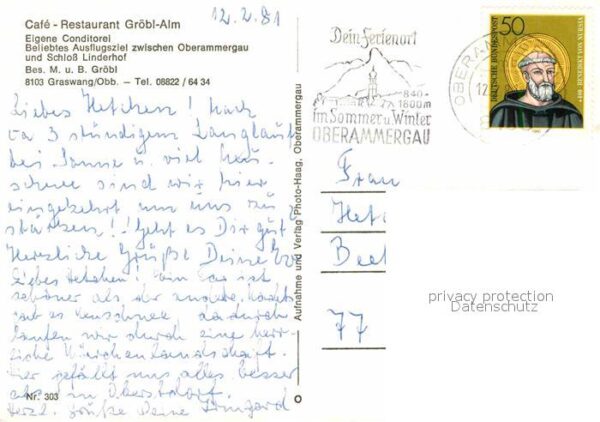 Café - Restaurant Gröbl-Alm
Eigene Conditorei
Beliebtes Ausflugsziel zwischen Oberammergau
und Schloß Linderhof
Bes. M. u. B. Gröbl
8103 Graswang/Obb. – Tel. 08822 / 64 34
12.2.81
Liebes Hetchen! Nach
ca 3 stündigem Langlauf
bei Sonne u. viel Neu-
schnee sind wir hier
eingekehrt um uns zu
stärken! Geht es Dir gut?
Herzliche Grüße Deine
Liebes Hetchen! Ein Tag ist
schöner als der andere. Nachts
gab es Neuschnee, dadurch
laufen wir durch eine herr-
liche Märchenlandschaft.
Hier gefällt uns alles besser
als in Oberstdorf.
Herzl. Grüße Deine Irmgard
Nr. 303
Aufnahme und Verlag Photo-Haag, Oberammergau
Dein Ferienort
840-
1800m
im Sommer u. Winter
OBERAMMERGAU
OBERAMM
12
50
DEUTSCHE BUNDESPOST
Frau
Het
77
privacy protection
Datenschutz